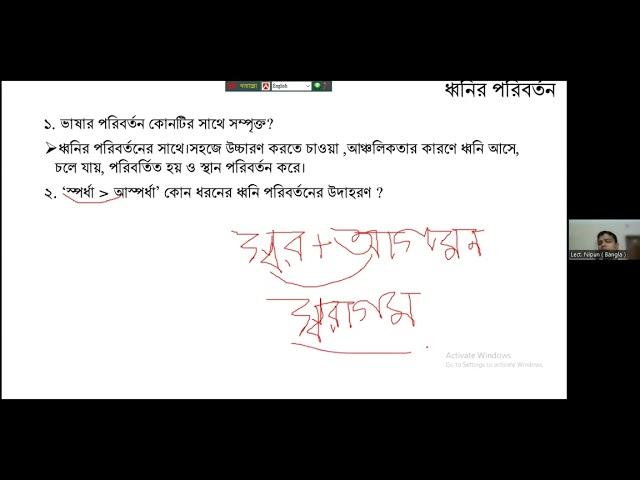 English
ধ্বনির পরিবর্তন
১. ভাষার পরিবর্তন কোনটির সাথে সম্পৃক্ত?
➢ধ্বনির পরিবর্তনের সাথে।সহজে উচ্চারণ করতে চাওয়া ,আঞ্চলিকতার কারণে ধ্বনি আসে,
চলে যায়, পরিবর্তিত হয় ও স্থান পরিবর্তন করে।
২. ‘স্পর্ধা > আস্পর্ধা’ কোন ধরনের ধ্বনি পরিবর্তনের উদাহরণ ?
স্বর + আগমন
স্বরাগম
Lect. Nipun ( Bangla )
Activate Windows
Go to Settings to activate Windows.